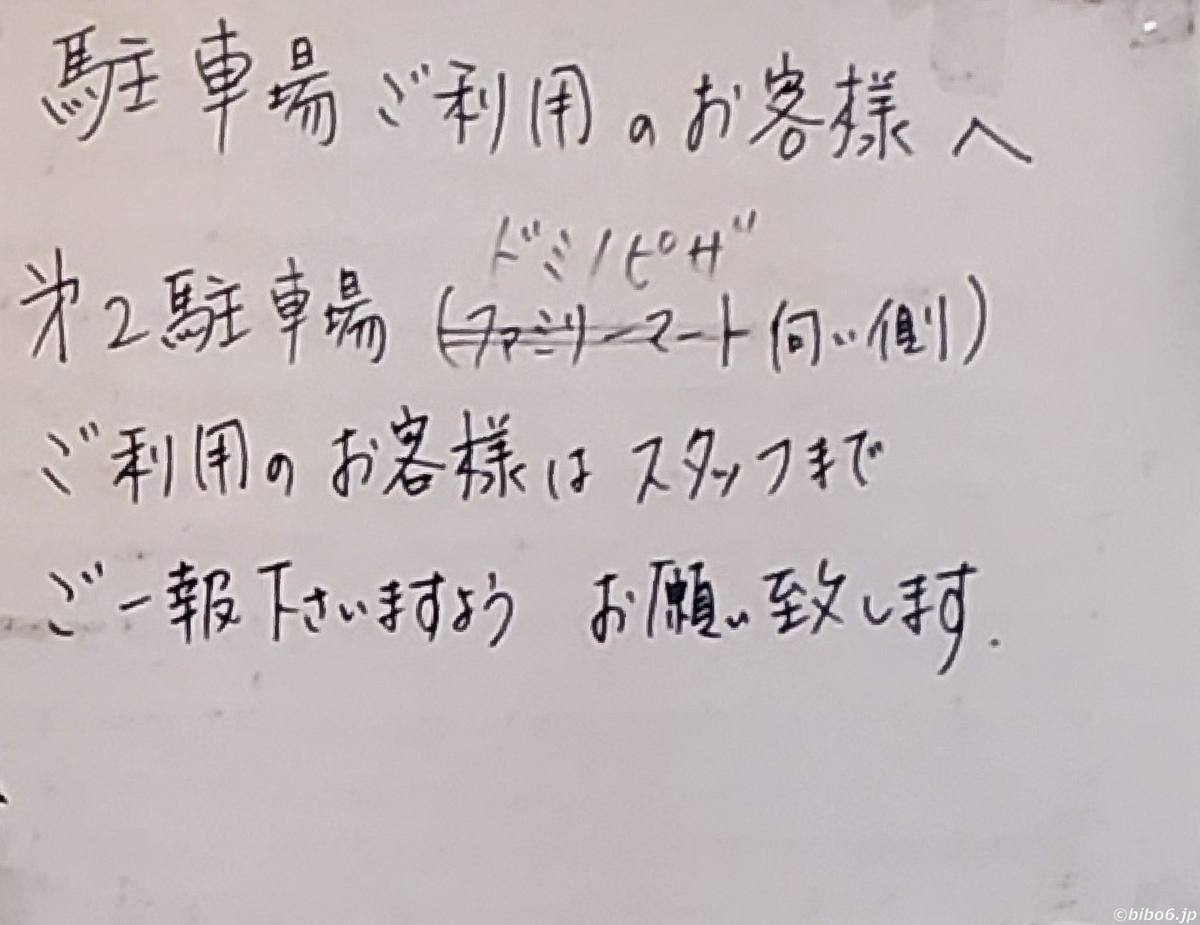 駐車場ご利用のお客様へ
ドミノピザ
第2駐車場(ファミリーマート向い側)
ご利用のお客様はスタッフまで
ご一報下さいますよう お願い致します.
©bibo6.jp